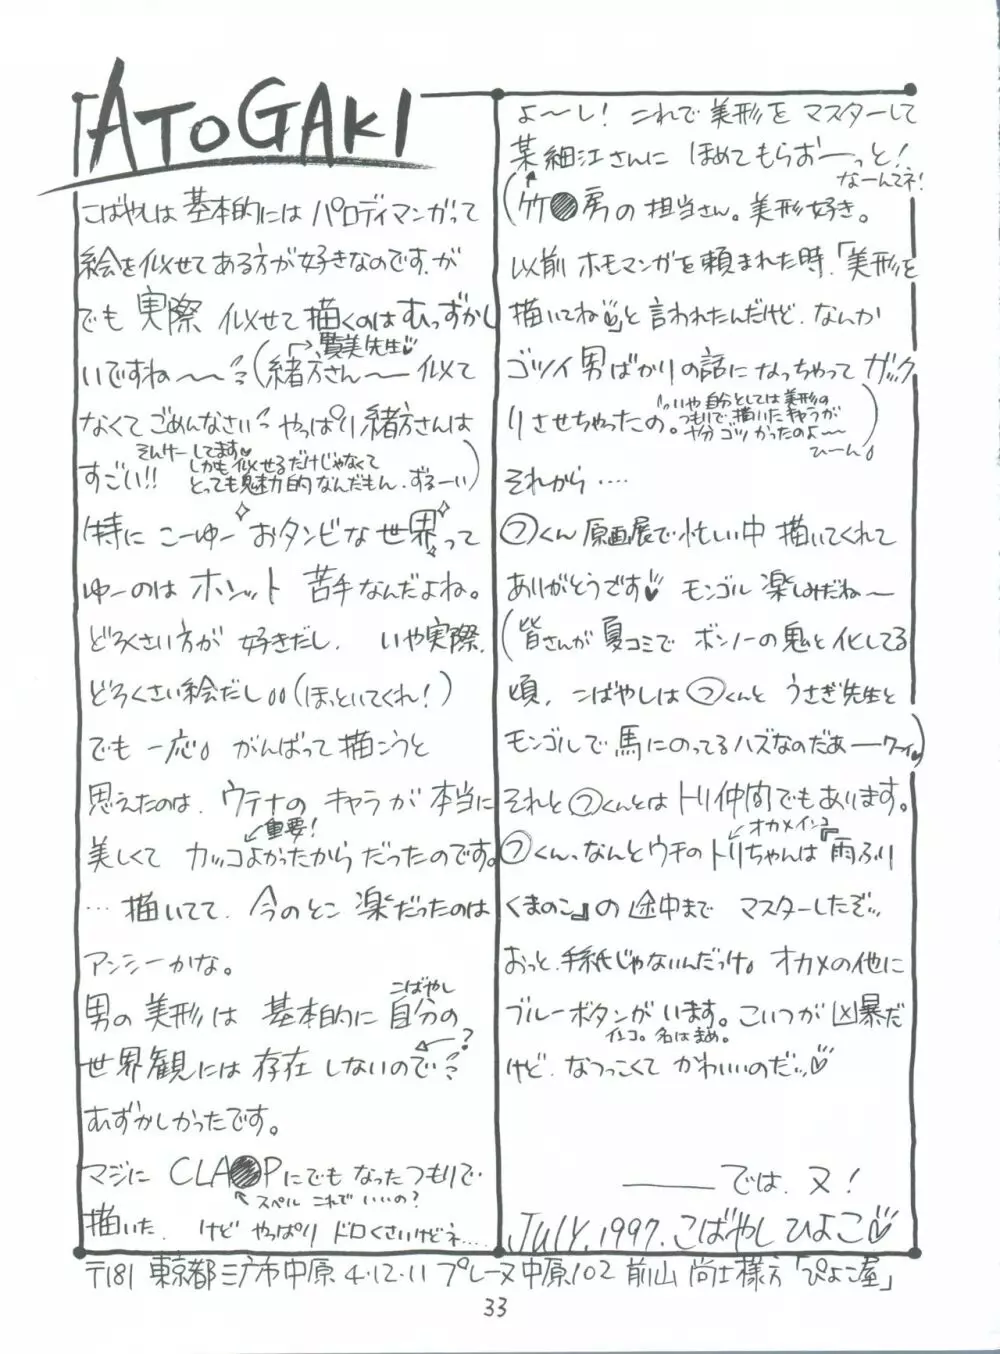 ATOGAKI
こばやしは基本的にはパロディマンガって
絵を似せてある方が好きなのです.が
でも実際 似せて描くのはむっずかし
いですね〜〜(緒方さん〜〜似て
→賢美先生♡
なくてごめんなさい やっぱり緒方さんは
すごい!!
そんけーしてます♡
しかも似せるだけじゃなくて
とっても魅力的なんだもん.ずるーい)
特に こーゆー おタンビな世界って
ゆーのは ホンット 苦手なんだよね。
どろくさい方が 好きだし いや実際.
どろくさい絵だし。。(ほっといてくれ!)
でも 一応。がんばって描こうと
思えたのは. ウテナの キャラが本当に
重要!
美しくて カッコよかったからだったのです。
…描いてて. 今のとこ 楽だったのは
アンシーかな。
男の美形は 基本的に自分の
こばやし
世界観には存在しないので
?
むずかしかったです。
マジに CLA●Pにでもなったつもりで.
スペル これでいいの?
描いた. けど やっぱり ドロくさいけどネ....
よ〜〜し! これで 美形を マスターして
某細江さんに ほめてもらおーっと!
なーんてネ!
(竹●房の担当さん。美形好き。
以前 ホモマンガを頼まれた時.「美形を
描いてね♡」と言われたんだけど.なんか
ゴツイ男ばかりの話になっちゃって ガック
リさせちゃったの。
いや自分としては美形の
つもりで描いたキャラが
十分ゴツかったのよ〜
ひーん。)
それから‥‥
㋡くん 原画展で忙しい中 描いてくれて
ありがとうです♡ モンゴル 楽しみだね〜
(皆さんが 夏コミで ボンノーの鬼と化してる
頃. こばやしは㋡くんと うさぎ先生と
モンゴルで馬にのってるハズなのだあーワーイ)
それと㋡くんとはトリ仲間でもあります。
オカメインコ
㋡くん、なんとウチのトリちゃんは『雨ふり
くまのこ』の途中まで マスターしたぞ
おっと.手紙じゃないんだっけ。オカメの他に
ブルーボタンがいます。こいつが凶暴だ
インコ。名はまめ。
けど.なつっこくて かわいいのだ♡
――では.又!
JULY.1997.こばやしひよこ♡
〒181 東京都三鷹市中原4-12-11 プレーヌ中原102 前山 尚士様方「ぴよこ屋」
33